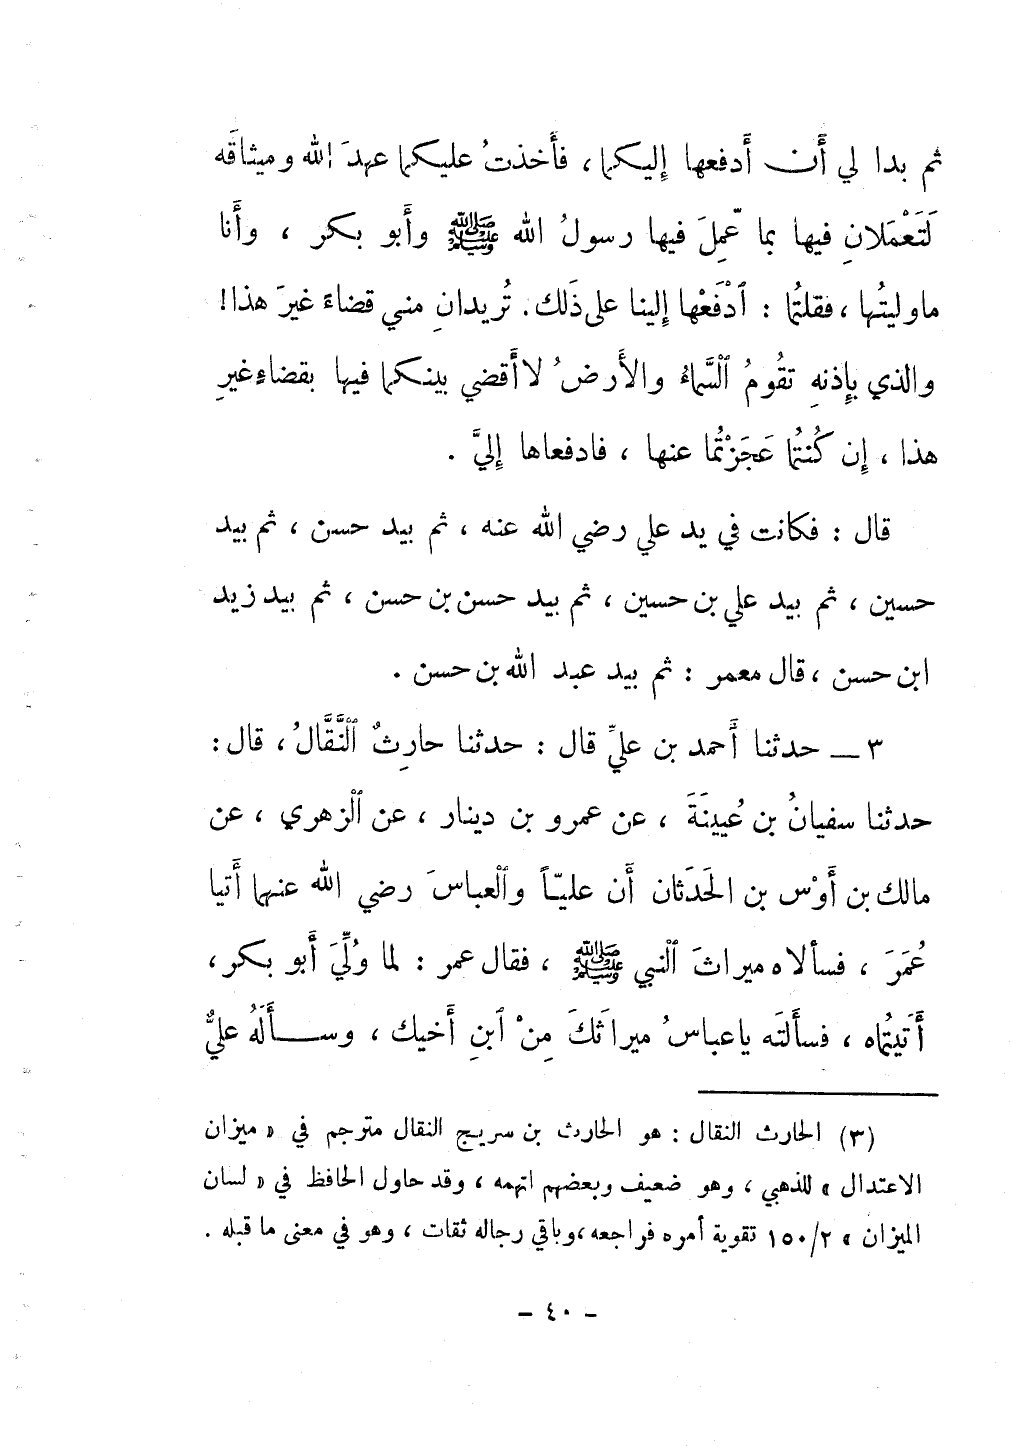 ثم بدا لي أَن أَدفعها إِليكما ، فأَخذتُ عليكما عهدَ الله وميثاقَه
لَتَعْمَلانِ فيها بما عَّمِلَ فيها رسولُ الله ﷺ وأَبو بكر ، وأَنا
ماوليتُها ، فقلتما : ٱدْفَعْها إِلينا على ذَلك . تُريدانِ مني قضاءً غيرَ هذا !
والذي بإِذنهِ تقُومُ ٱلسَّماءُ والأَرضُ لا أَقضي بينكما فيها بقضاءٍ غيرِ
هذا ، إِن كُنتما عَجَزْتُما عنها ، فادفعاها إِليَّ .
قال : فكانت في يد علي رضي الله عنه ، ثم بيد حسن ، ثم بيد
حسين ، ثم بيد علي بن حسين ، ثم بيد حسن بن حسن ، ثم بيد زيد
ابن حسن ، قال معمر : ثم بيد عبد الله بن حسن .
٣ ــ حدثنا أَحمد بن عليٍّ قال : حدثنا حارِثٌ ٱلنَّقَّالُ ، قال :
حدثنا سفيانُ بن عُيينَةَ ، عن عمرو بن دينار ، عن ٱلزهري ، عن
مالك بن أَوْس بن الحَدَثان أَن عليّاً وٱلعباسَ رضي الله عنهما أَتيا
عُمَرَ ، فسألاه ميراثَ ٱلنبي ﷺ ، فقال عمر : لما وُلِّيَ أَبو بكر ،
أَتيتُماه ، فسأَلتَه ياعباسُ ميراثَكَ مِنْ ٱبنِ أَخيك ، وســأَلَهُ عليٌّ
(٣) الحارث النقال : هو الحارث بن سريج النقال مترجم في « ميزان
الاعتدال » للذهبي ، وهو ضعيف وبعضهم اتهمه ، وقد حاول الحافظ في « لسان
الميزان » ٢/١٥٠ تقوية أمره فراجعه ، وباقي رجاله ثقات ، وهو في معنى ما قبله .
– ٤٠ –